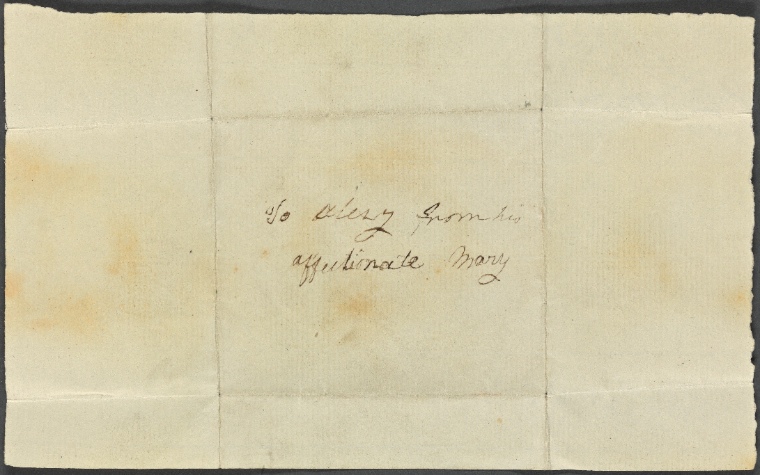 To Alexy from his
affectionate Mary